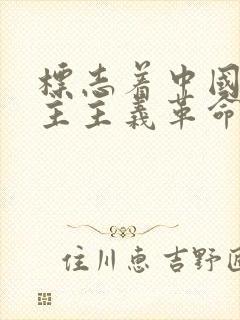 標志着中國
主主義革命
住川惠吉野匠